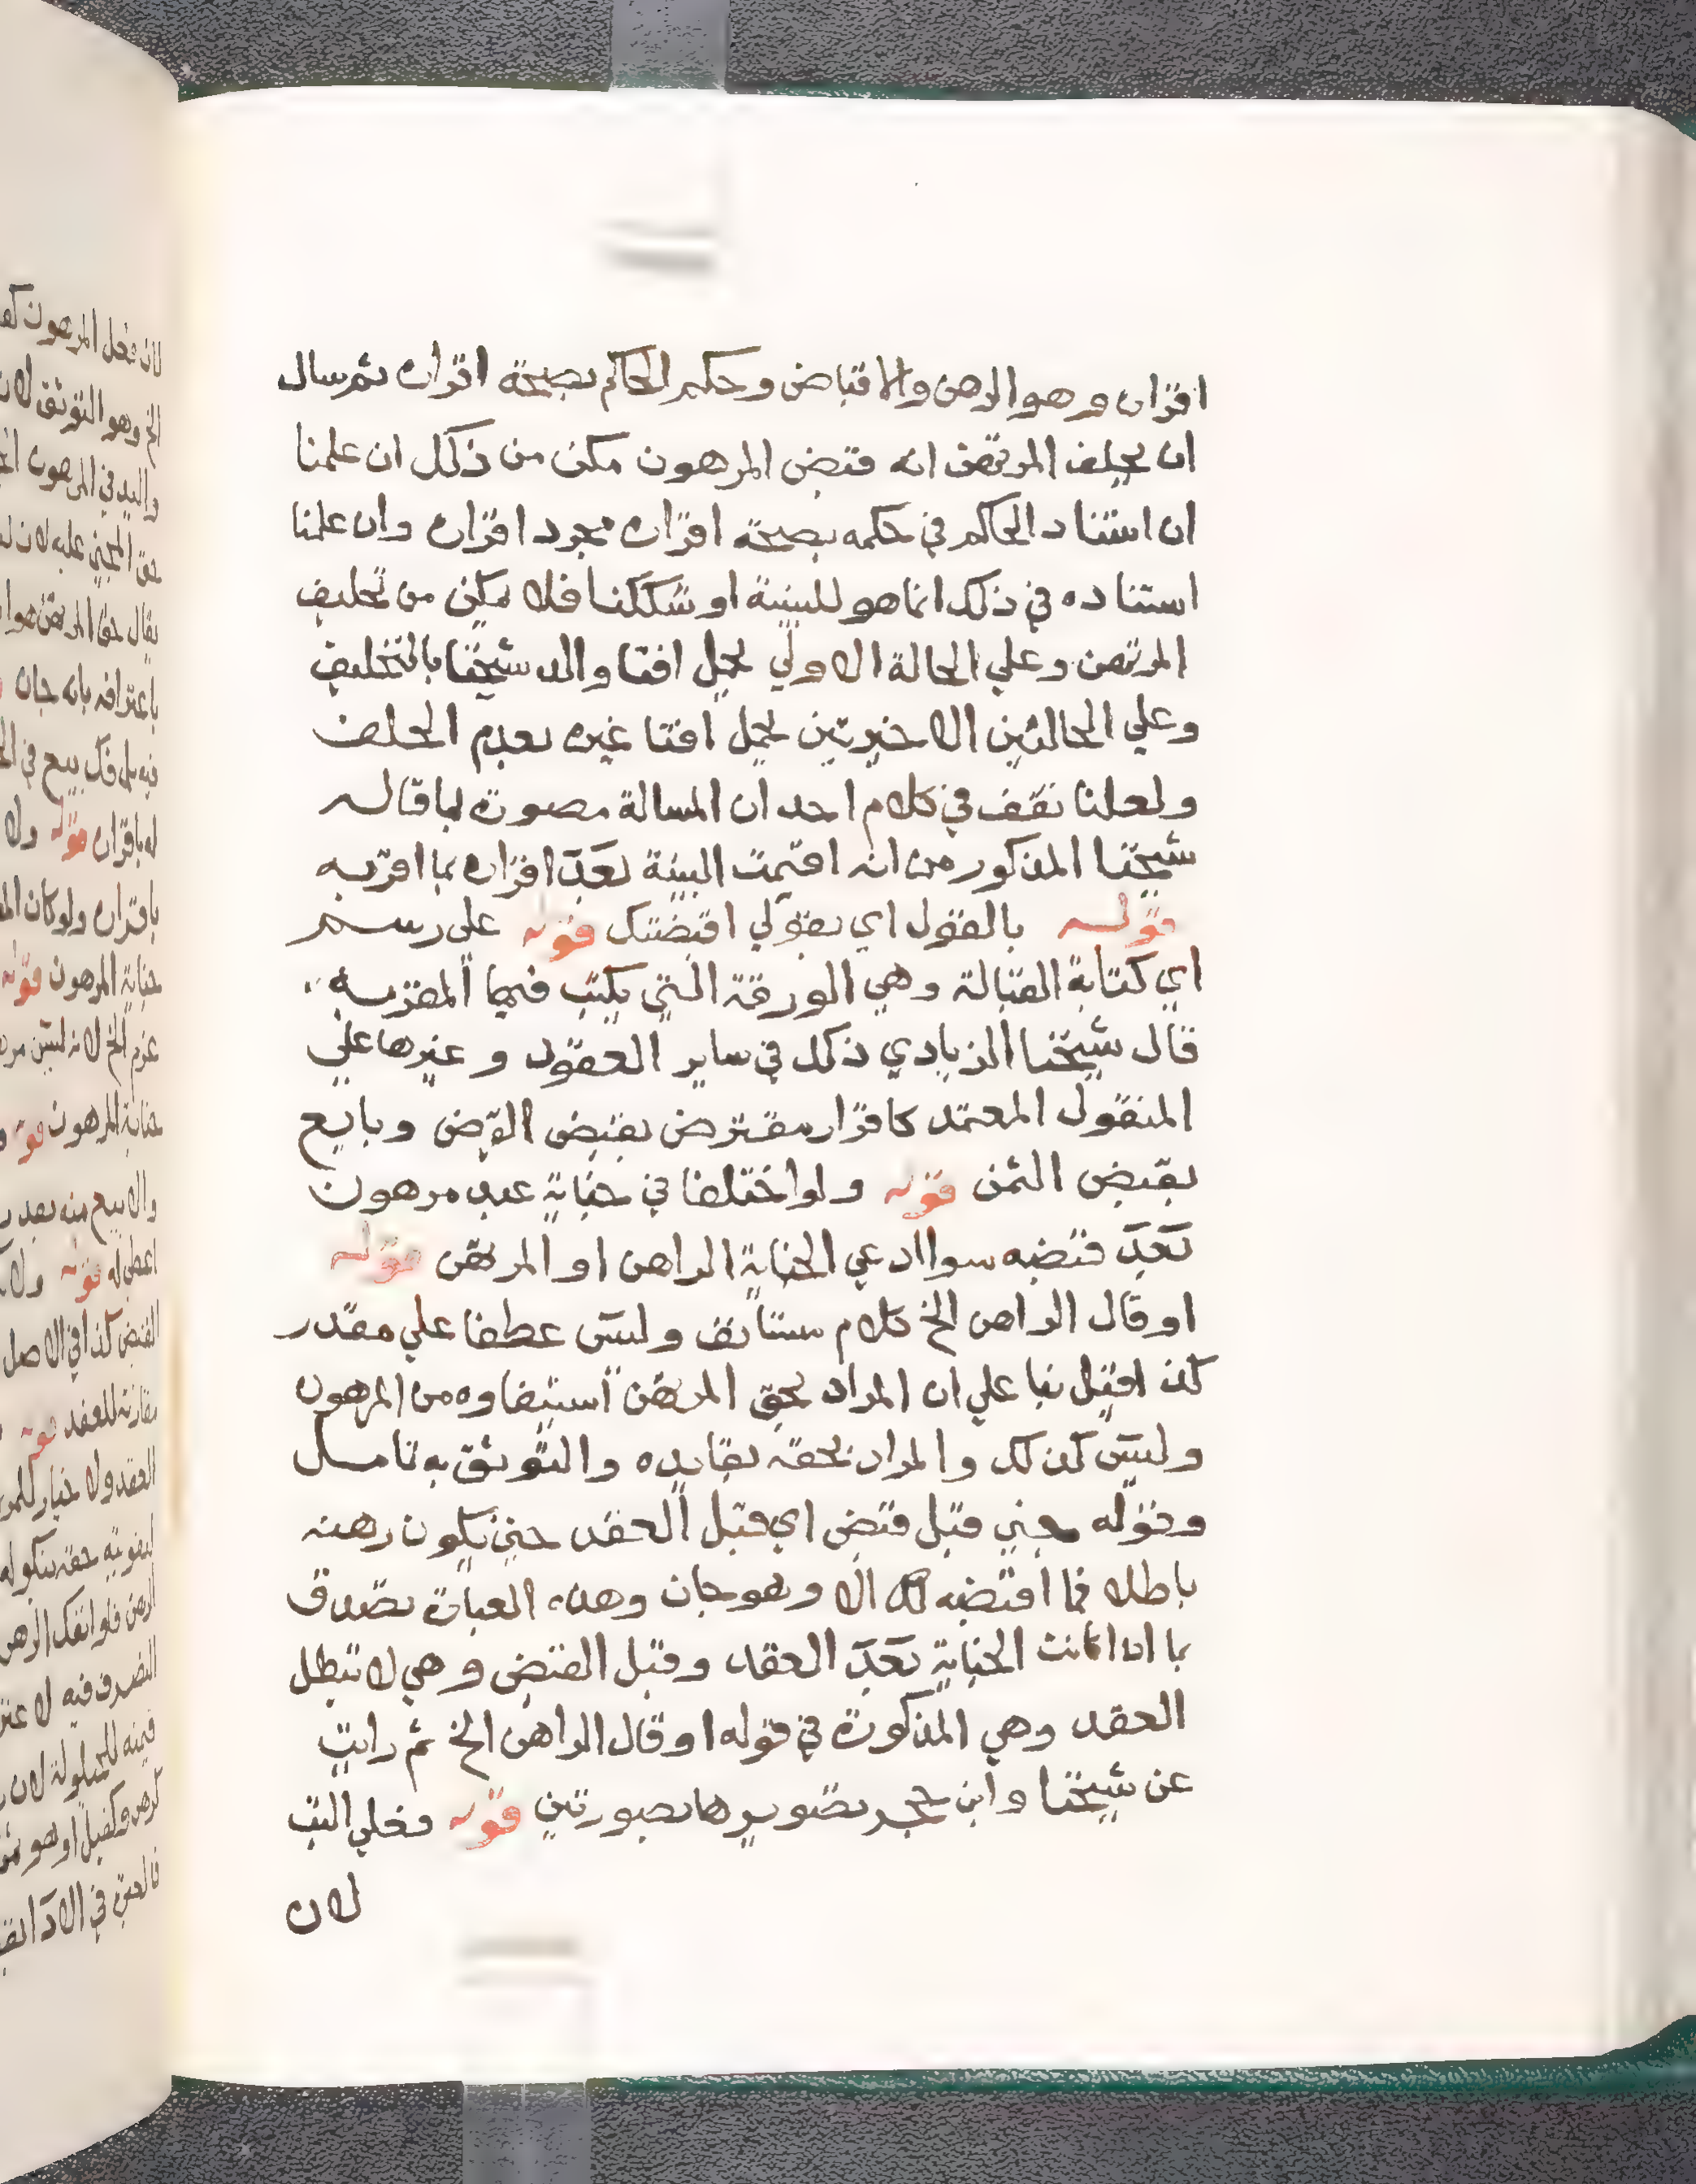 اقراره وهو الرهن والاقباض وحكم الحاكم بصحة اقراره ثم سال
ان يحلف المرتهن انه قبض المرهون مكن من ذلك ان علمنا
ان استناد الحاكم في حكمه بصحة اقراره مجرد اقراره وان علمنا
استناده في ذلك انما هو للبينة او شككنا فلا يمكن من تحليف
المرتهن وعلي الحالة الاولي يحمل افتا والد شيخنا بالتحليف
وعلي الحالتين الاخيرتين يحمل افتا غيره بعدم الحلف
ولعلنا نقف في كلام احد ان المسالة مصورة بما قاله
شيخنا المذكور من انه اقيمت البينة بعد اقراره بما اقر به
قوله بالقول اي بقولي اقبضتك قوله علي رسم
اي كتابة القبالة وهي الورقة التي يكتب فيها المقر به
قال شيخنا الزيادي ذلك في ساير العقود وغيرها علي
المنقول المعتمد كاقرار مقترض بقبض القرض وبايع
بقبض الثمن قوله ولو اختلفا في جناية عبد مرهون
بعد قبضه سوا ادعي الجناية الراهن او المرتهن قوله
او قال الراهن الخ كلام مستانف وليس عطفا علي مقدر
كذا قيل بنا علي ان المراد بحق المرتهن استيفاوه من المرهون
وليس كذلك والمراد بحقه بقا يده والتوثق به تامل
وقوله جني قبل قبض اي قبل العقد حتي يكون رهنه
باطلا فما اقبضه الا وهو جان وهذه العبارة تصدق
بما اذا كانت الجناية بعد العقد وقبل القبض وهي لا تبطل
العقد وهي المذكورة في قوله او قال الراهن الخ ثم رايت
عن شيخنا وابن حجر تصويرها بصورتين قوله فعلي البت
لان